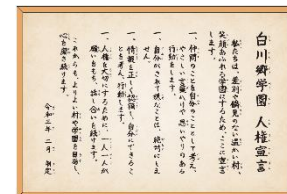 白川郷学園 人権宣言
私たちは、差別や偏見のない温かい村、
笑顔あふれる学園にするため、ここに宣言
します。
一、仲間のことを自分のこととして考え、
やさしい言葉かけや思いやりのある
行動をします。
一、自分がされて嫌なことは、絶対にしま
せん。
一、情報を正しく認識し、自分にできるこ
とを考え、行動します。
一、人権を大切にするために、一人一人が
願いをもち、話し合いを続けます。
これからも、よりよい村や学園を目指し、
心を磨き続けます。
令和三年 二月 制定